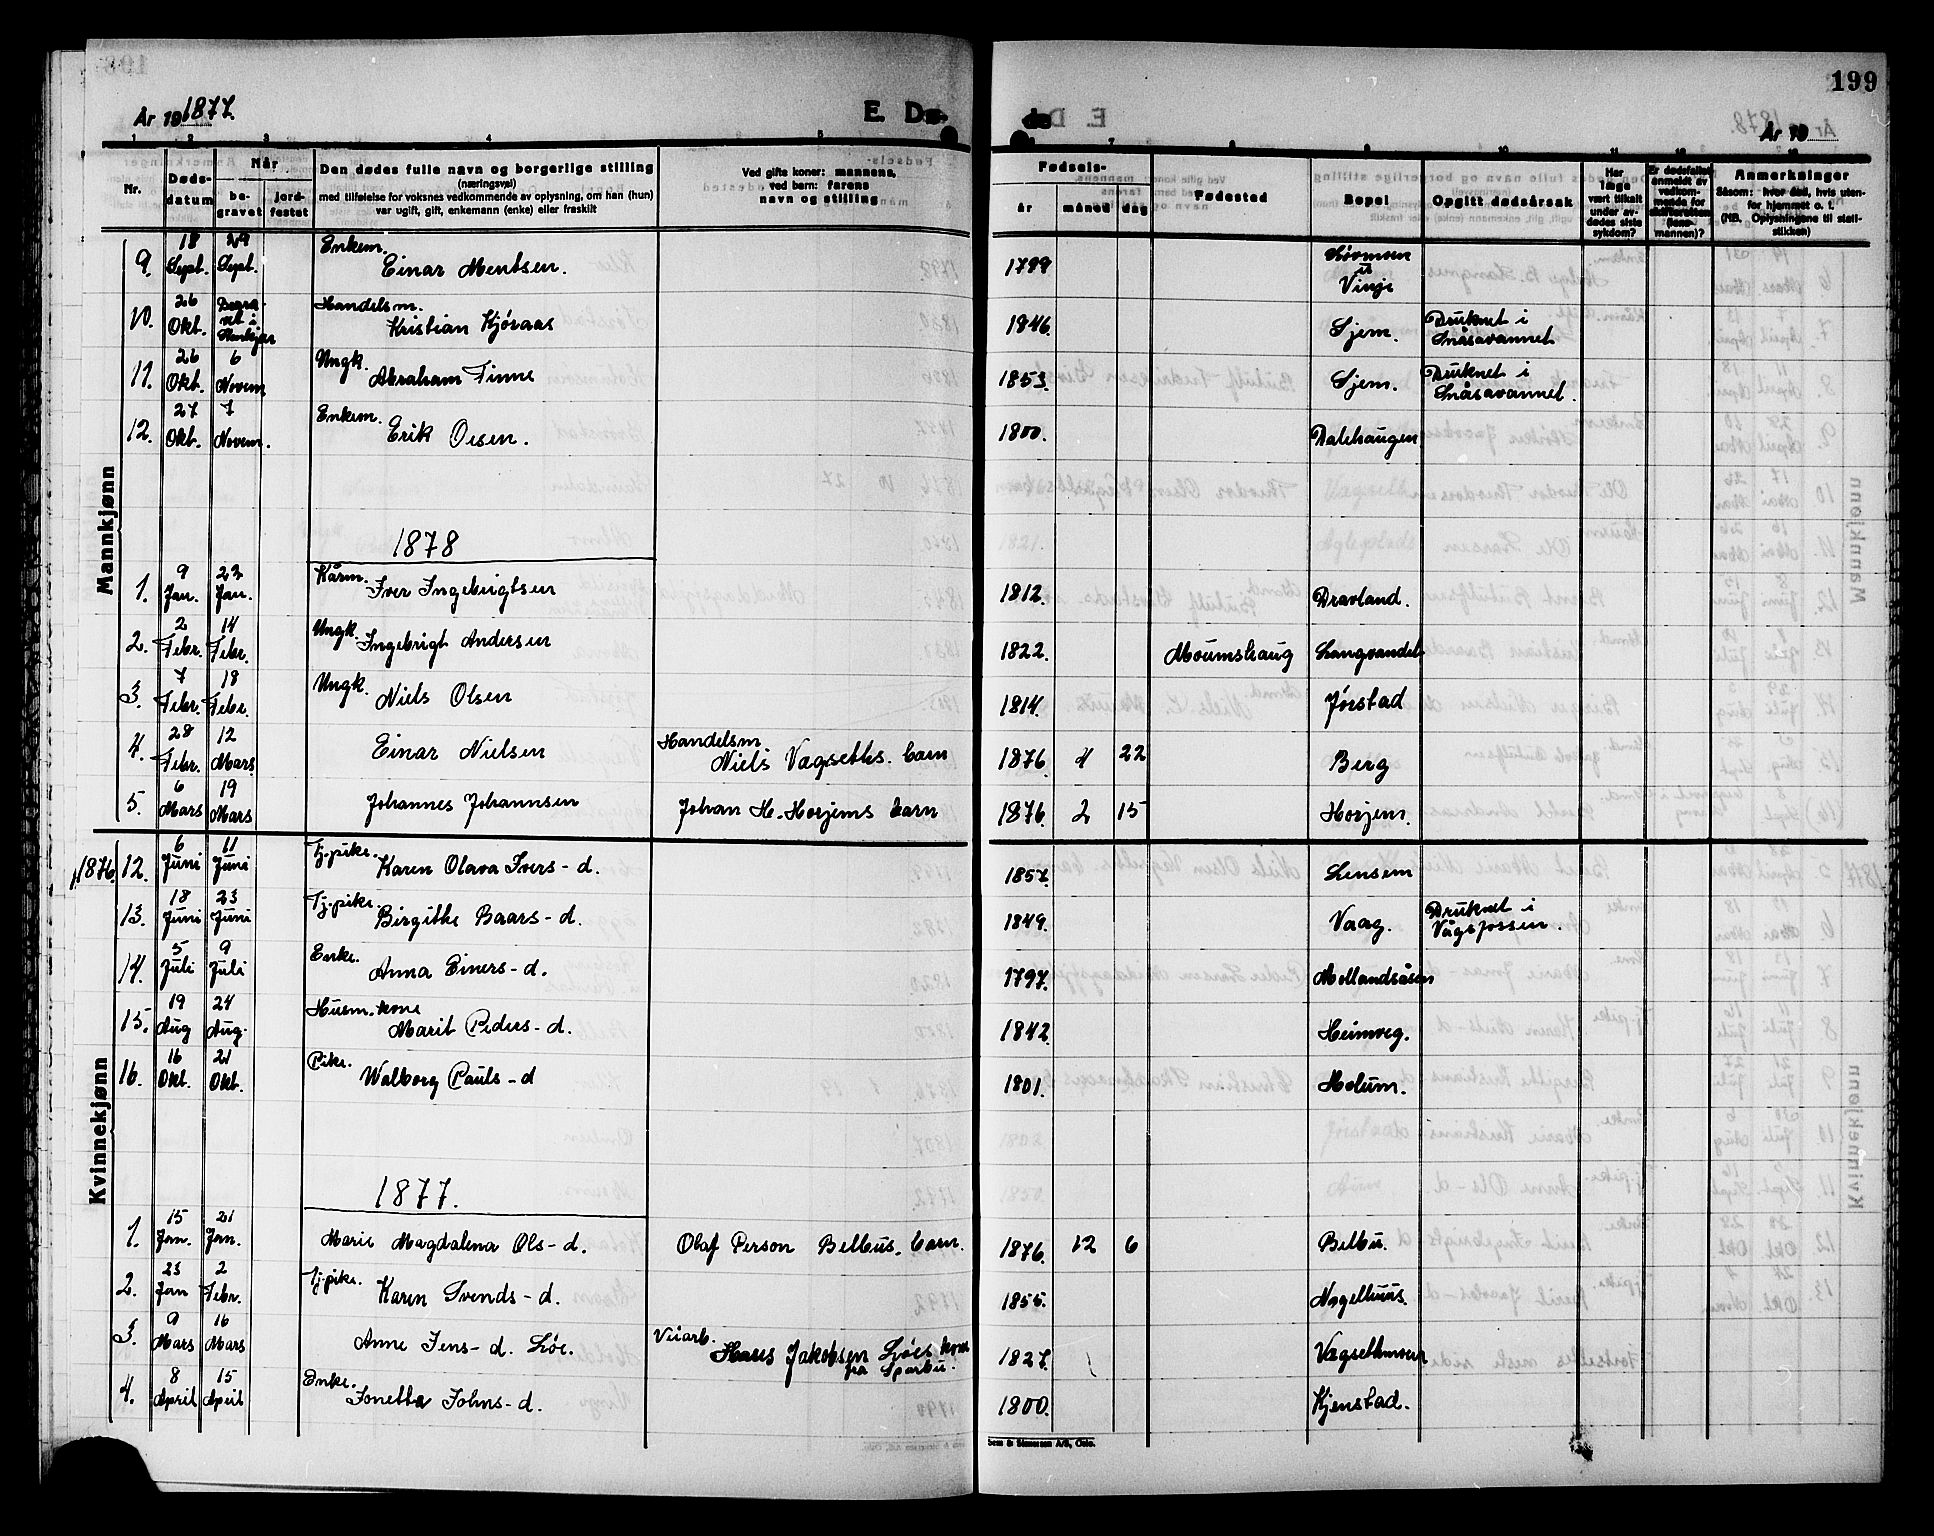 År 19 1877.
E. Dø-
de
199
År 19
1 2 3 4 5 6
7 8 9 10 11 12 13
Nr.
Døds-datum
Når
be-gravet
jord-festet
Den dødes fulle navn og borgerlige stilling
(næringsvei)
med tilføielse for voksnes vedkommende av oplysning, om han (hun)
var ugift, gift, enkemann (enke) eller fraskilt
Ved gifte koner: mannens,
ved barn: farens
navn og stilling
Fødsels-
år måned dag
Fødested
Bopel
Opgitt dødsårsak
Har læge vært tilkalt under av-dødes siste sykdom?
Er dødsfallet anmeldt av vedkom-mende for skifteretten (lens-mannen)?
Anmerkninger
Såsom: hvor død, hvis uten-
for hjemmet o. l.
(NB. Oplysningene til stati-
stikken)
Mannkjønn
9. 18 Sept. 29 Sept. Enkem. Einar Mentsen. 1799 Vinje
10. 26 Okt. Begra-vet i Handelsm. Kristian Kjøraas 1846. Sjem. Druknet i Snåsavannet
11. 26 Okt. 6 Novem Ungk. Abraham Finne 1853. Sjem. Druknet i Snåsavannet.
12. 27 Okt. 7 Novem. Enkem. Erik Olsen. 1800. Dalehaugen
1878
1. 9 Jan. 23 Jan. Kårm. Iver Ingebrigtsen 1812. Bravland.
2. 2 Febr. 14 Febr. Ungk. Ingebrigt Andersen 1822. Moumshaug Langvandet
3. 7 Febr. 18 Febr. Ungk. Niels Olsen 1814. Jørstad
4. 28 Febr. 12 Mars Einar Nielsen Handelsm. Niels Vægseths. barn 1876 4 22 Berg
5. 6 Mars 19 Mars Johannes Johannsen Johan H. Horjems barn 1876. 2 15 Horjem.
Kvinnekjønn
1876. 12. 6 Juni 11 Juni Tj.pike. Karen Olava Ivers-d. 1857. Lensem
13. 18 Juni 23 Juni Tj.pike. Birgithe Baars-d. 1849. Vaag. Druknet i Vågsfossen.
14. 5 Juli 9 Juli Enke. Anna Einers-d. 1797. Mollandsåsen
15. 19 Aug 24 Aug. Husm. kone Marit Peders-d. 1842 Heimveg.
16. 16 Okt. 21 Okt. Pike. Walborg Pauls-d 1801. Holum.
1877.
1. 15 Jan. 21 Jan. Marie Magdalena Ols-d. Olaf Person Belbus. barn. 1876. 12 6 Belbu.
2. 23 Jan 2 Febr. Tj.pike. Karen Svends-d. 1855. Nagelhuus.
3. 9 Mars 16 Mars Anne Jens-d. Løe. Veiarb. Hans Jakobsen Løes kone fra Sparbu. 1827. Vægsethmoen
4. 8 April 15 April Enke. Jonetta Johns-d. 1800. Kjenstad.